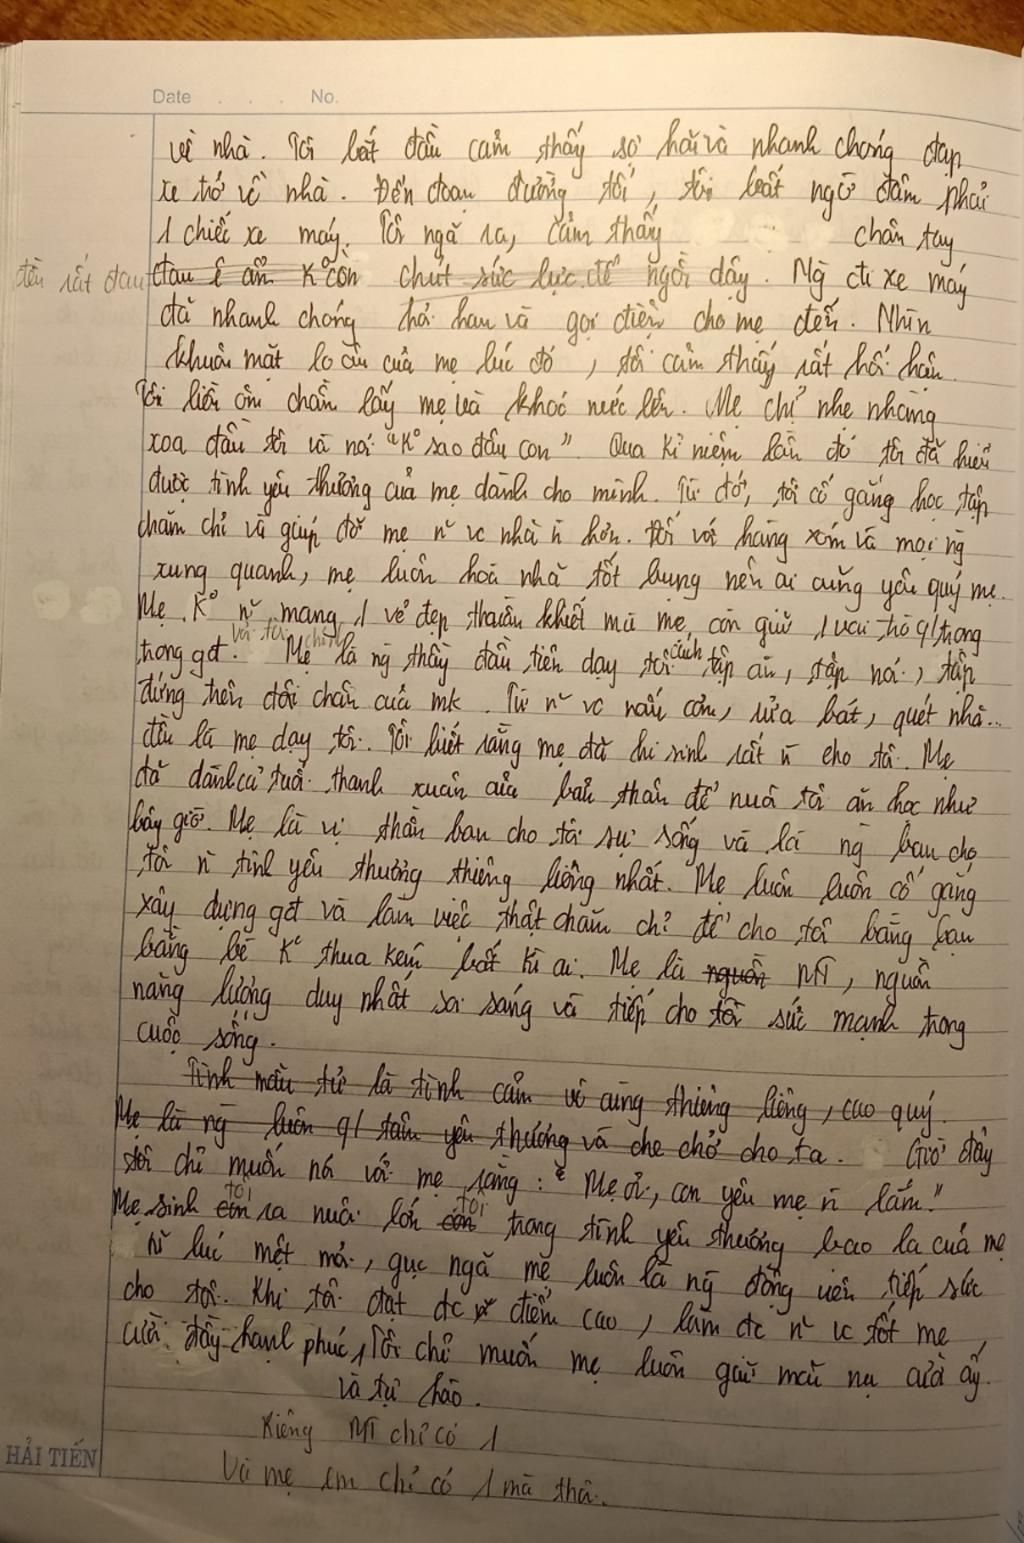 Date . . . No.
về nhà. Tôi bắt đầu cảm thấy sợ hãi và nhanh chóng đạp
xe trở về nhà. Đến đoạn đường tối, tôi bất ngờ đâm phải
1 chiếc xe máy. Tôi ngã ra, cảm thấy chân tay
đều rất đau đau ê ẩm K° còn chút sức lực để ngồi dậy. Ng̀ đi xe máy
đã nhanh chóng hỏi han và gọi điện cho mẹ đến. Nhìn
khuôn mặt lo âu của mẹ lúc đó, tôi cảm thấy rất hối hận.
Tôi liền ôm chầm lấy mẹ và khóc nức lên. Mẹ chỉ nhẹ nhàng
xoa đầu tôi và nói "K° sao đâu con". Qua kỉ niệm lần đó tôi đã hiểu
được tình yêu thương của mẹ dành cho mình. Từ đó, tôi cố gắng học tập
chăm chỉ và giúp đỡ mẹ n~ vc nhà n hơn. Đối với hàng xóm và mọi ng̀
xung quanh, mẹ luôn hoà nhã tốt bụng nên ai cũng yêu quý mẹ.
Mẹ K° n~ mang 1 vẻ đẹp thuần khiết mà mẹ còn giữ 1 vai trò q/trọng
trong gđ. Với tôi Mẹ chính là ng̀ thầy đầu tiên dạy tôi cách tập ăn, tập nói, tập
đứng trên đôi chân của mk. Từ n~ vc nấu cơm, rửa bát, quét nhà...
đều là mẹ dạy tôi. Tôi biết rằng mẹ đã hi sinh rất n cho tôi. Mẹ
đã dành cả tuổi thanh xuân của bản thân để nuôi tôi ăn học như
bây giờ. Mẹ là vị thần ban cho tôi sự sống và là ng̀ ban cho
tôi n tình yêu thương thiêng liêng nhất. Mẹ luôn luôn cố gắng
xây dựng gđ và làm việc thật chăm chỉ để cho tôi bằng bạn
bằng bè K° thua kém bất kì ai. Mẹ là nguồn MT, nguồn
năng lượng duy nhất soi sáng và tiếp cho tôi sức mạnh trong
cuộc sống.
Tình mẫu tử là tình cảm vô cùng thiêng liêng, cao quý.
Mẹ là ng̀ luôn q/ tâm yêu thương và che chở cho ta. Giờ đây
tôi chỉ muốn nói với mẹ rằng: "Mẹ ơi, con yêu mẹ n lắm."
Mẹ sinh con tôi ra nuôi lớn con tôi trong tình yêu thương bao la của mẹ
N~ lúc mệt mỏi, gục ngã mẹ luôn là ng̀ động viên tiếp sức
cho tôi. Khi tôi đạt đc điểm cao, làm đc n~ vc tốt mẹ
cười đầy hạnh phúc, Tôi chỉ muốn mẹ luôn giữ mãi nụ cười ấy.
và tự hào.
Kiềng MT chỉ có 1
Và mẹ em chỉ có 1 mà thôi.
HẢI TIẾN